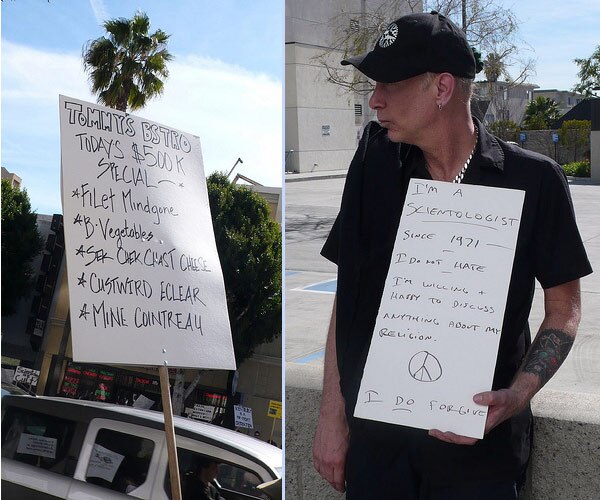 TOMMY'S BSTRO
TODAYS $500K
SPECIAL
* FILET Mindgone
* B. Vegetables
* CUSTWIRD ECLEAR
* MINE COINTREAU
I'M A
SCIENTOLOGIST
SINCE 1971
I DO NOT HATE
I'M WILLING +
HAPPY TO DISCUSS
ANYTHING ABOUT MY
RELIGION.
I DO FORGIVE